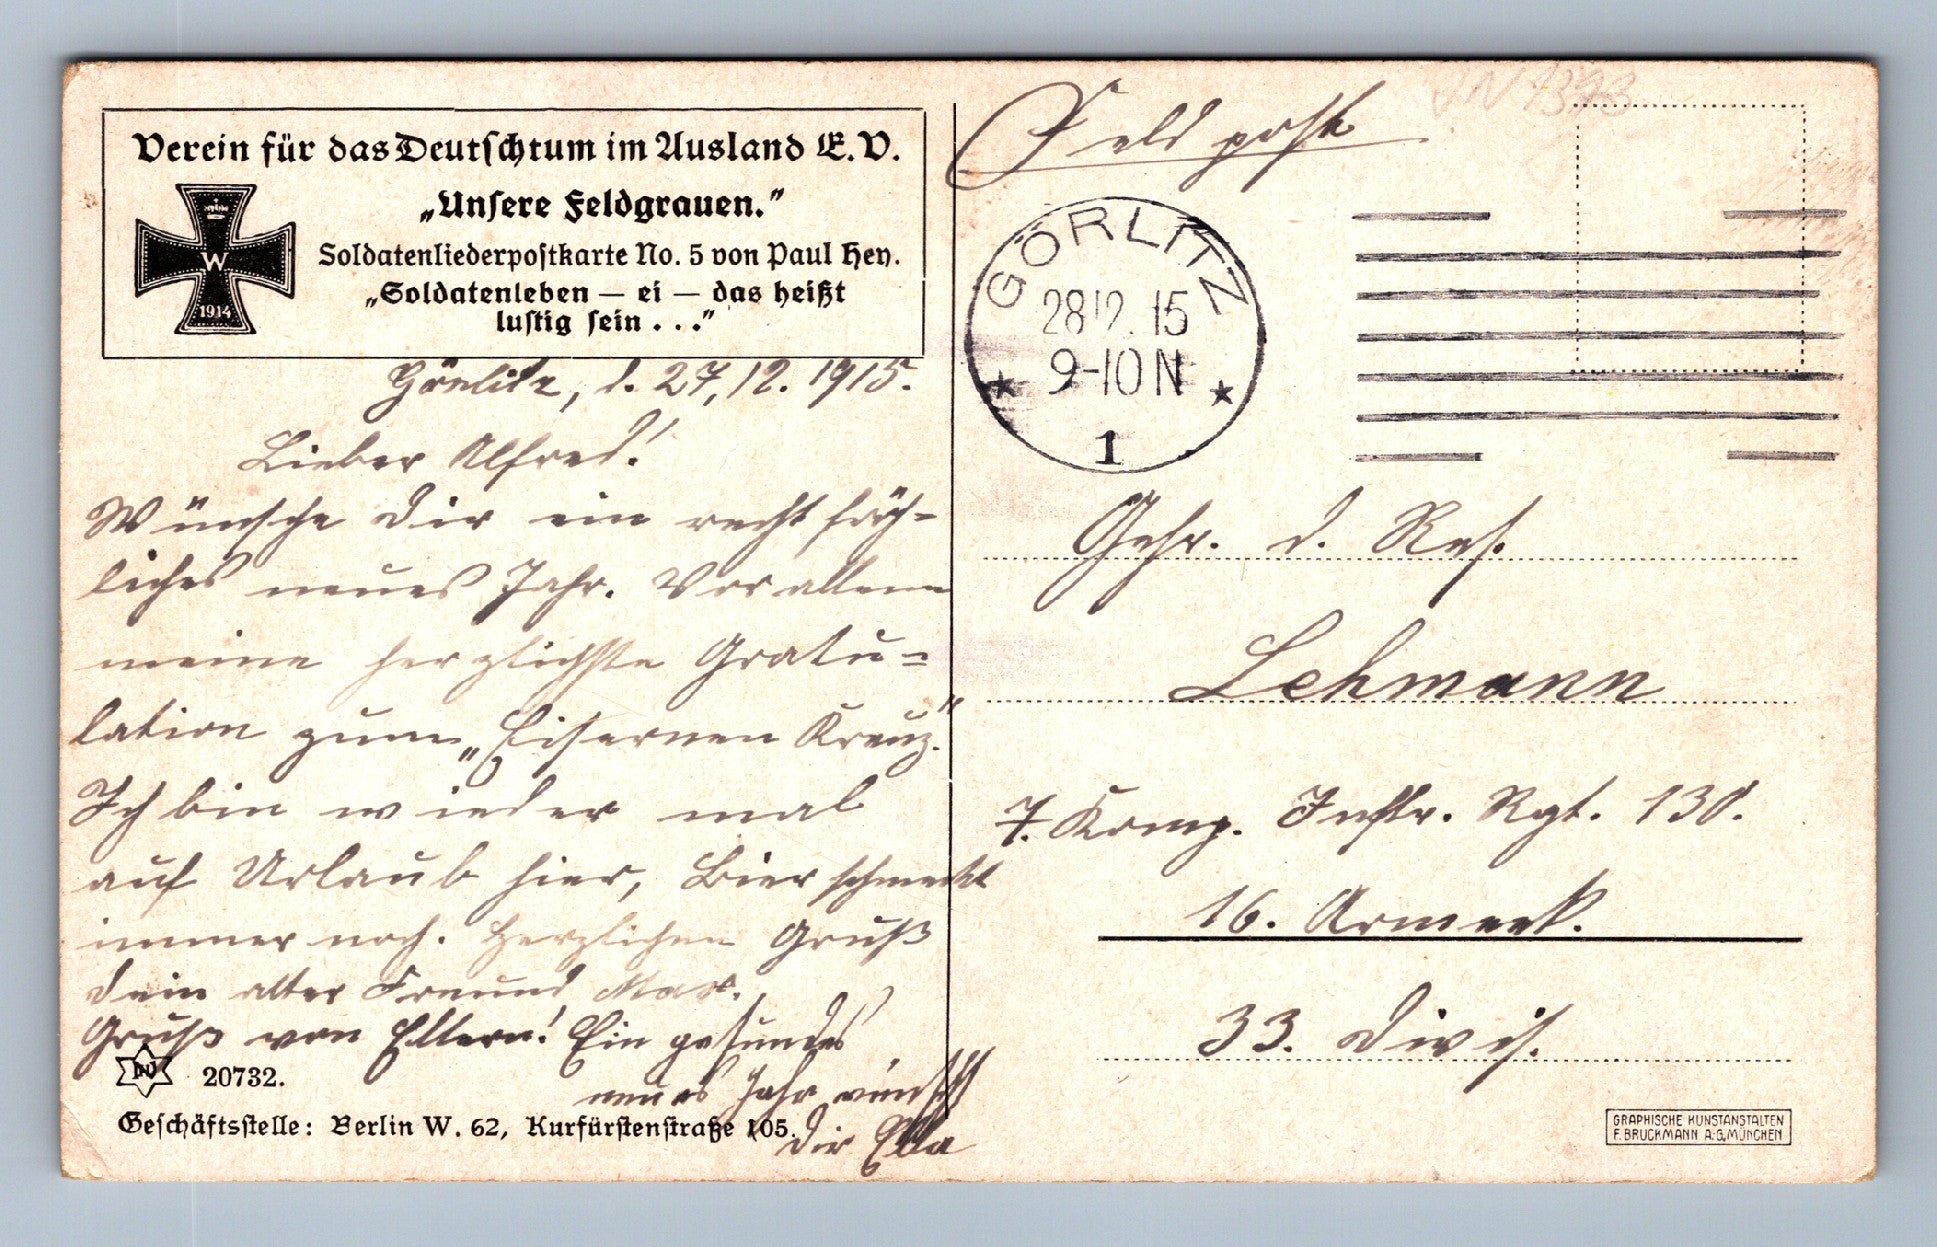 Verein für das Deutschtum im Ausland E.V.
„Unsere Feldgrauen."
Soldatenliederpostkarte No. 5 von Paul Hey.
„Soldatenleben — ei — das heißt
lustig sein . . ."
W
1914
Görlitz, d. 27.12.1915.
Lieber Alfred!
Wünsche dir ein recht fröh-
liches neues Jahr. Vor allem
meine herzlichste Gratu-
lation zum „Eisernen Kreuz."
Ich bin wieder mal
auf Urlaub hier, Bier schmeckt
immer noch. Herzlichen Gruß
dein alter Freund Max.
Gruß von Eltern! Ein gesundes
neues Jahr wünscht
dir Ella
20732.
Geschäftsstelle: Berlin W. 62, Kurfürstenstraße 105.
Feldpost
GÖRLITZ
28 12. 15
9-10 N
1
Gefr. d. Res.
Lehmann
7. Komp. Inftr. Rgt. 130.
16. Armeek.
33. Divis.
GRAPHISCHE KUNSTANSTALTEN
F. BRUCKMANN A.G. MÜNCHEN